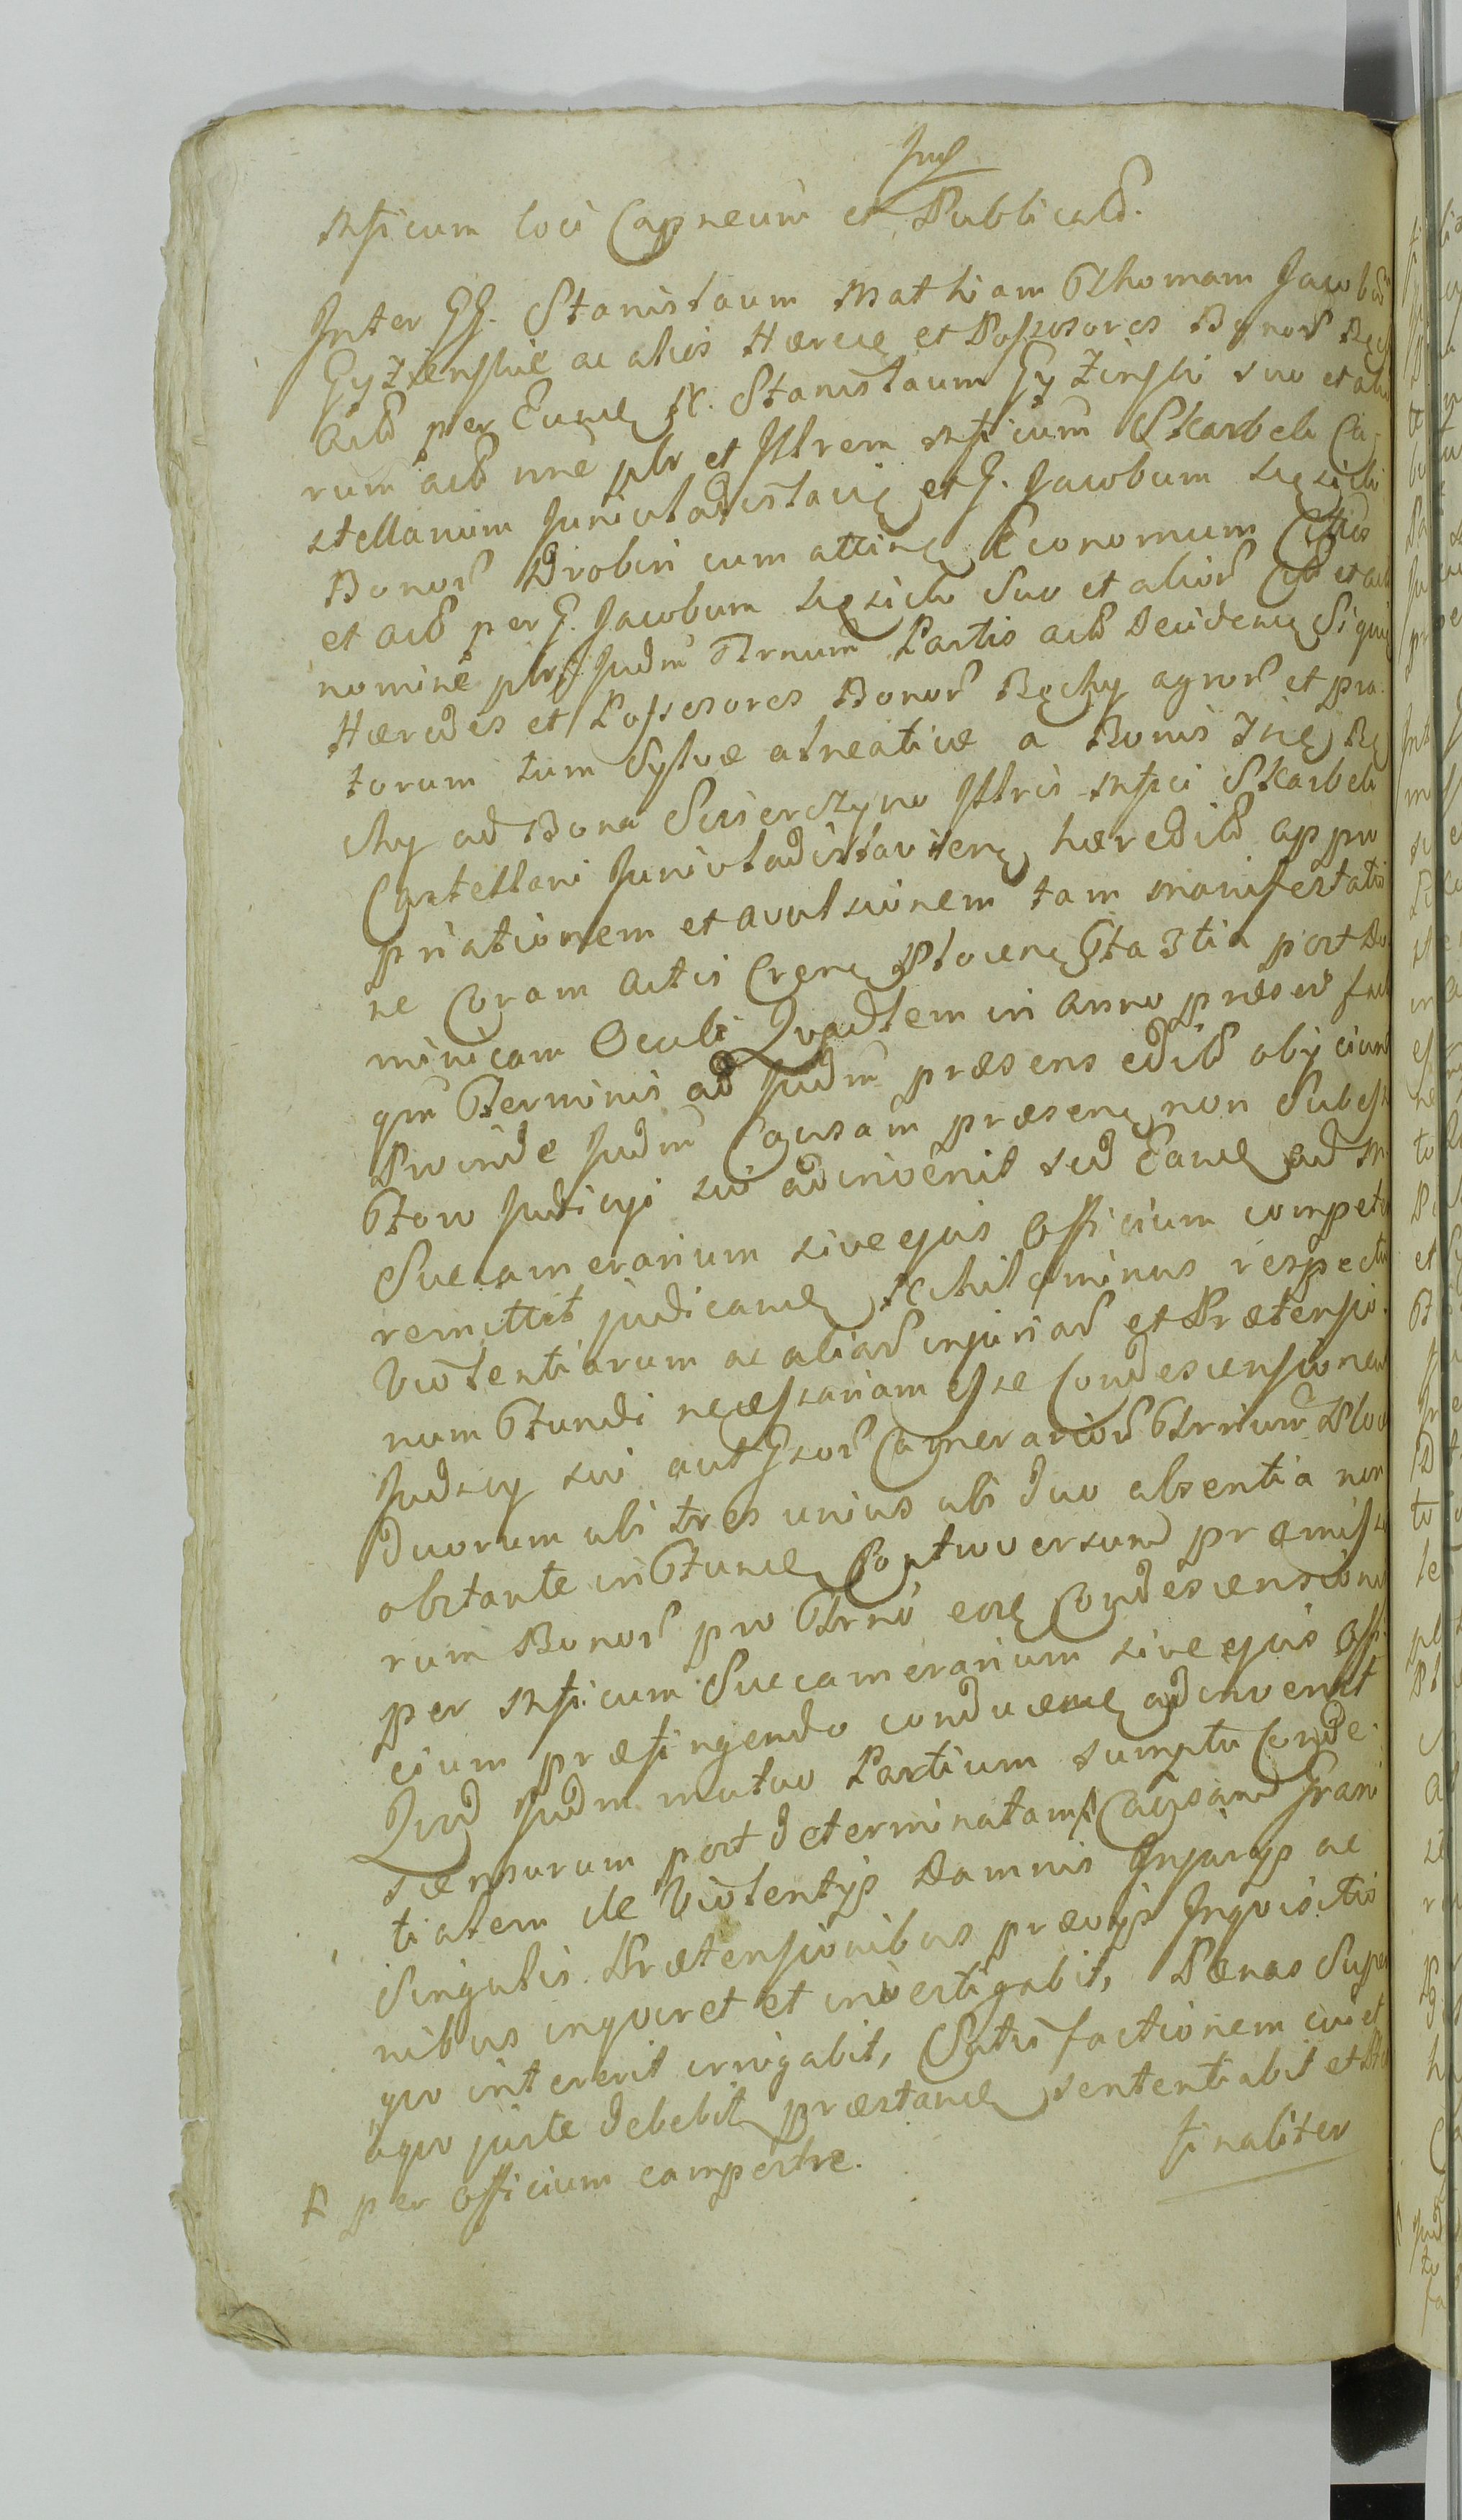 Jud
Mficum loci Capneum et Publicat.
Inter GG. Stanislaum Mathiam Thomam Jacobū
Gyzienskie ac alios Hærede et Possesores Bonor Bęch
Act per Eund N. Stanislaum Gyzinski suo et alio
rum act nne plr et Illrem Mficum Skarbek Ca-
stellanum Juniuladislavie et G. Jacobum
Bonor Drobin cum attine Economum Cittos
et act per G. Jacobum suo et alior Cit et act
nomine plr Judm Trnum Partis act decidene Siqui
Hæredes et Possesores Bonor Bęchy agror et pra-
torum tum Sylvæ alneaticæ a Bonis Bę
chy ad Bona Swierczyno Illris Mfici Skarbek
Castellani Juniuladislaviens hæredit appro
priationem et avulsionem tam manifestatio
ne Coram Actis Crene Plocene fta 3tia post Do
minicam Oculi Quadlem in Anno præsen fact
qm Terminis ad Judm præsens edit obijciunt
Proinde Judm Causam præsene non Subesse
Foro Judicij sui adinvenit sed Eand ad M
Succamerarium sive ejus Officium competen
remittit judicand Nihilominus respectu
Violentiarum ac aliar injuriar et Prætensio-
num Fundi necessariam esse Condescensionem
Judicy sui aut Gsor Camerarior Trrium Ploc
Duorum ubi tres unius ubi duo absentia non
obstante in Fund Controversum præmisso
rum Bonor pro Trno eore Condescensionis
per Mficum Succamerarium sive ejus Offi
cium præfingendo conducend adinvenit
Quod Judm mutuo Partium sumptu Conde-
scensurum post determinatam Causam Grani
tialem de Violentijs Damnis Injurijs ac
Singulis Prætensionibus prævijs Inqvisitio
nibus inqviret et investigabit, Pænas Super
quo intererit irrogabit, Satisfactionem cui et
aqvo juste debebit præstand sententiabit et
finaliter
per Officium campestre.